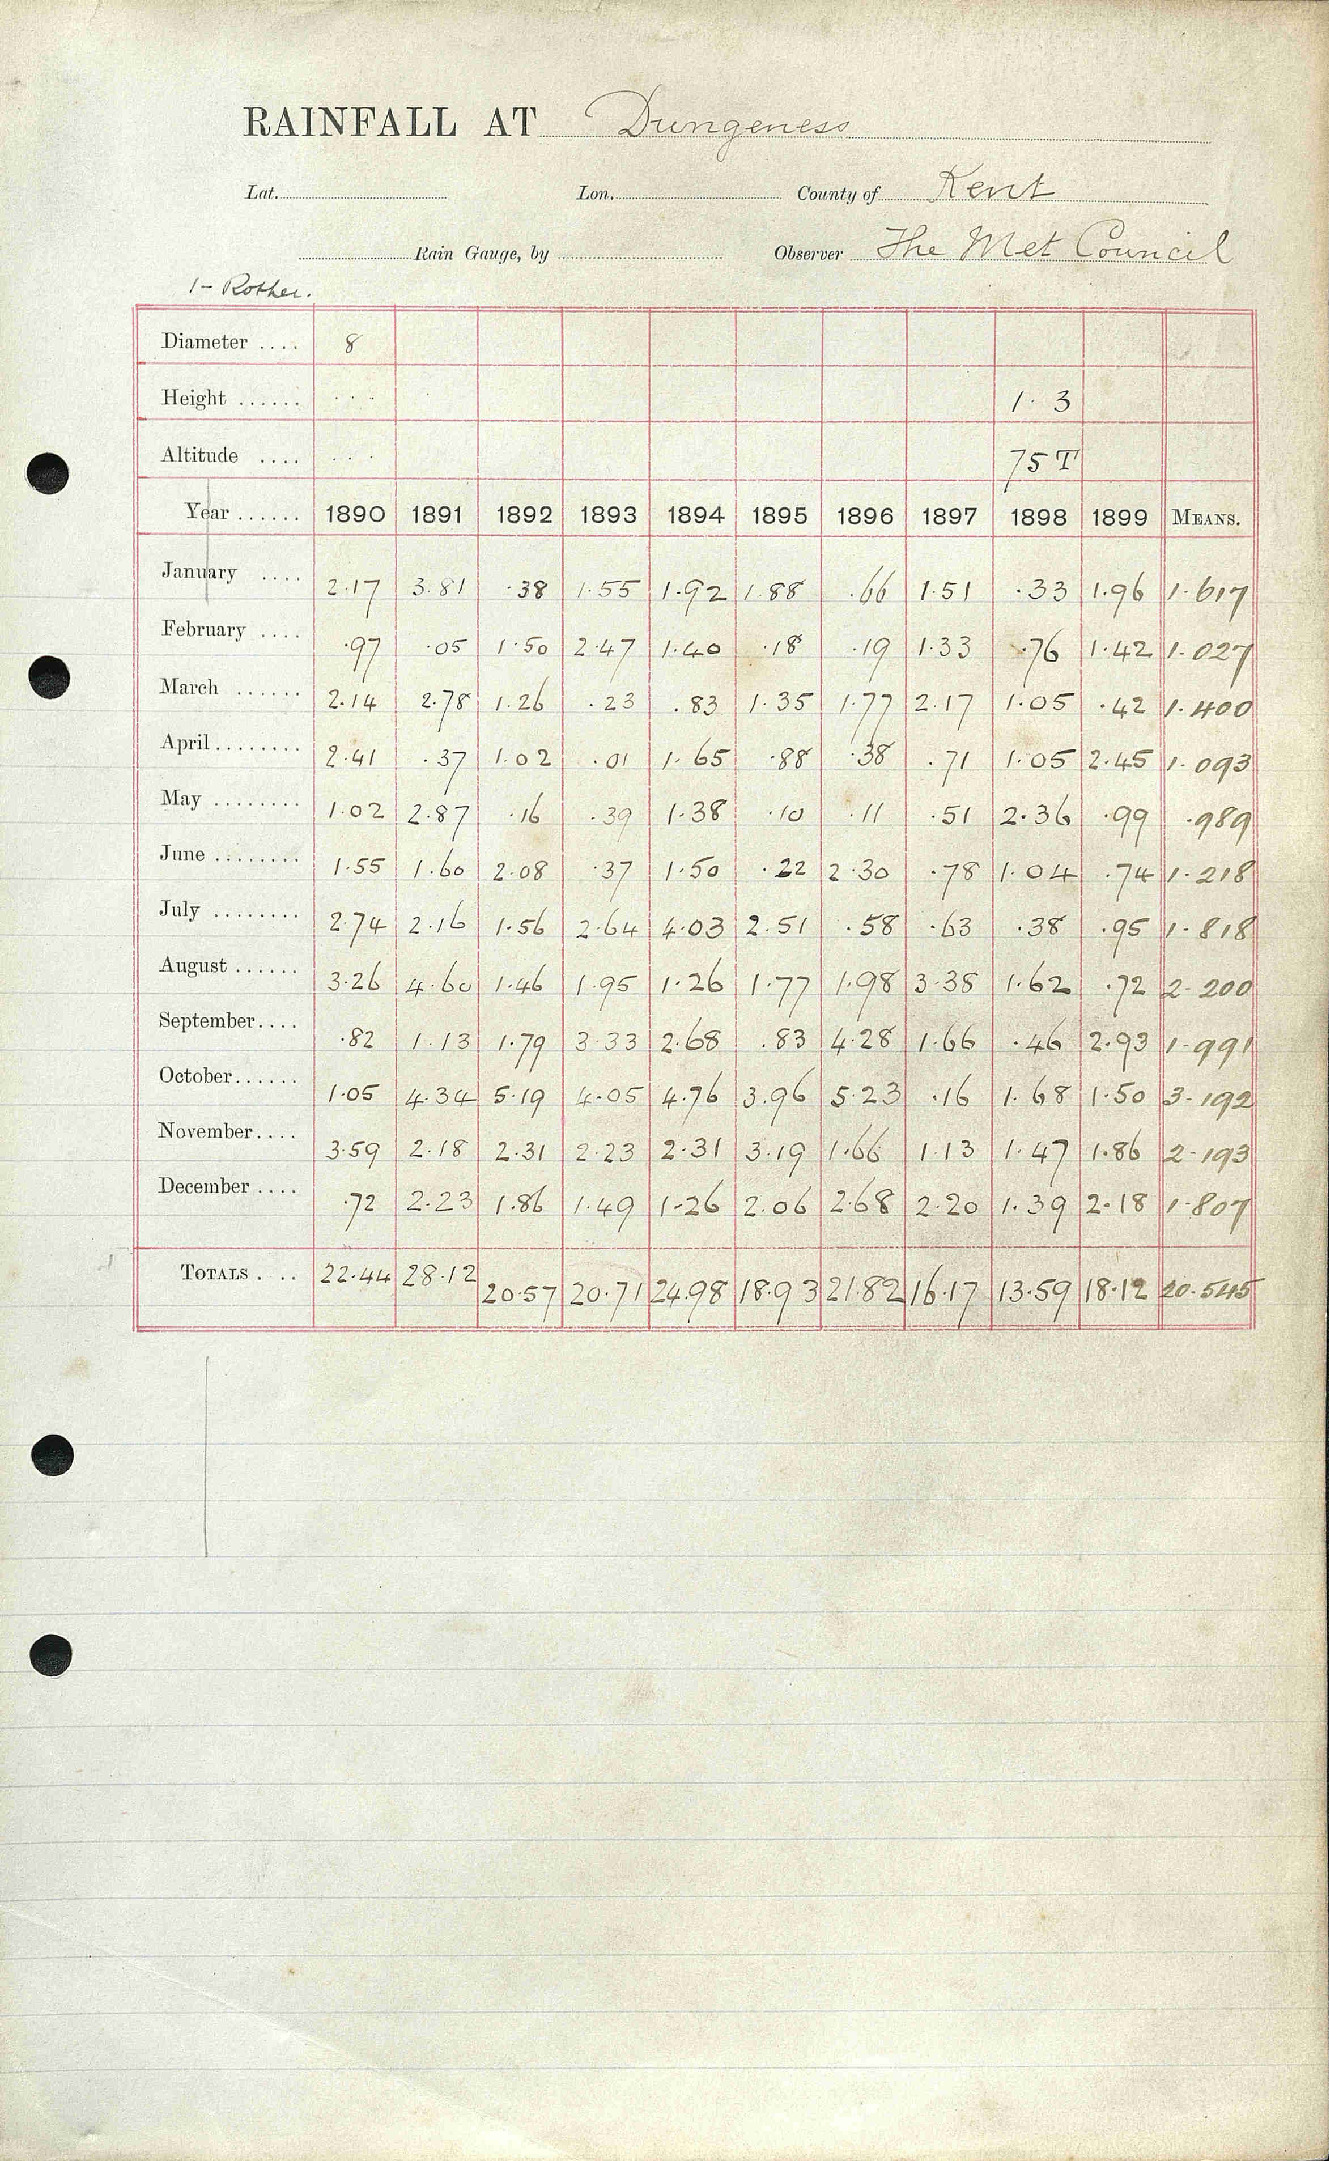 RAINFALL AT Dungeness
Lat. Lon. County of Kent
Rain Gauge, by Observer The Met Council
1- Rother.
Diameter .... 8
Height ...... . . . 1. 3
Altitude .... . . . 75 T
Year ...... 1890 1891 1892 1893 1894 1895 1896 1897 1898 1899 MEANS.
January .... 2.17 3.81 .38 1.55 1.92 1.88 .66 1.51 .33 1.96 1.617
February .... .97 .05 1.50 2.47 1.40 .18 .19 1.33 .76 1.42 1.027
March ...... 2.14 2.78 1.26 .23 .83 1.35 1.77 2.17 1.05 .42 1.400
April ........ 2.41 .37 1.02 .01 1.65 .88 .38 .71 1.05 2.45 1.093
May ........ 1.02 2.87 .16 .39 1.38 .10 .11 .51 2.36 .99 .989
June ........ 1.55 1.60 2.08 .37 1.50 .22 2.30 .78 1.04 .74 1.218
July ........ 2.74 2.16 1.56 2.64 4.03 2.51 .58 .63 .38 .95 1.818
August ...... 3.26 4.60 1.46 1.95 1.26 1.77 1.98 3.38 1.62 .72 2.200
September .... .82 1.13 1.79 3.33 2.68 .83 4.28 1.66 .46 2.93 1.991
October ...... 1.05 4.34 5.19 4.05 4.76 3.96 5.23 .16 1.68 1.50 3.192
November .... 3.59 2.18 2.31 2.23 2.31 3.19 1.66 1.13 1.47 1.86 2.193
December .... .72 2.23 1.86 1.49 1.26 2.06 2.68 2.20 1.39 2.18 1.807
TOTALS .... 22.44 28.12 20.57 20.71 24.98 18.93 21.82 16.17 13.59 18.12 20.545